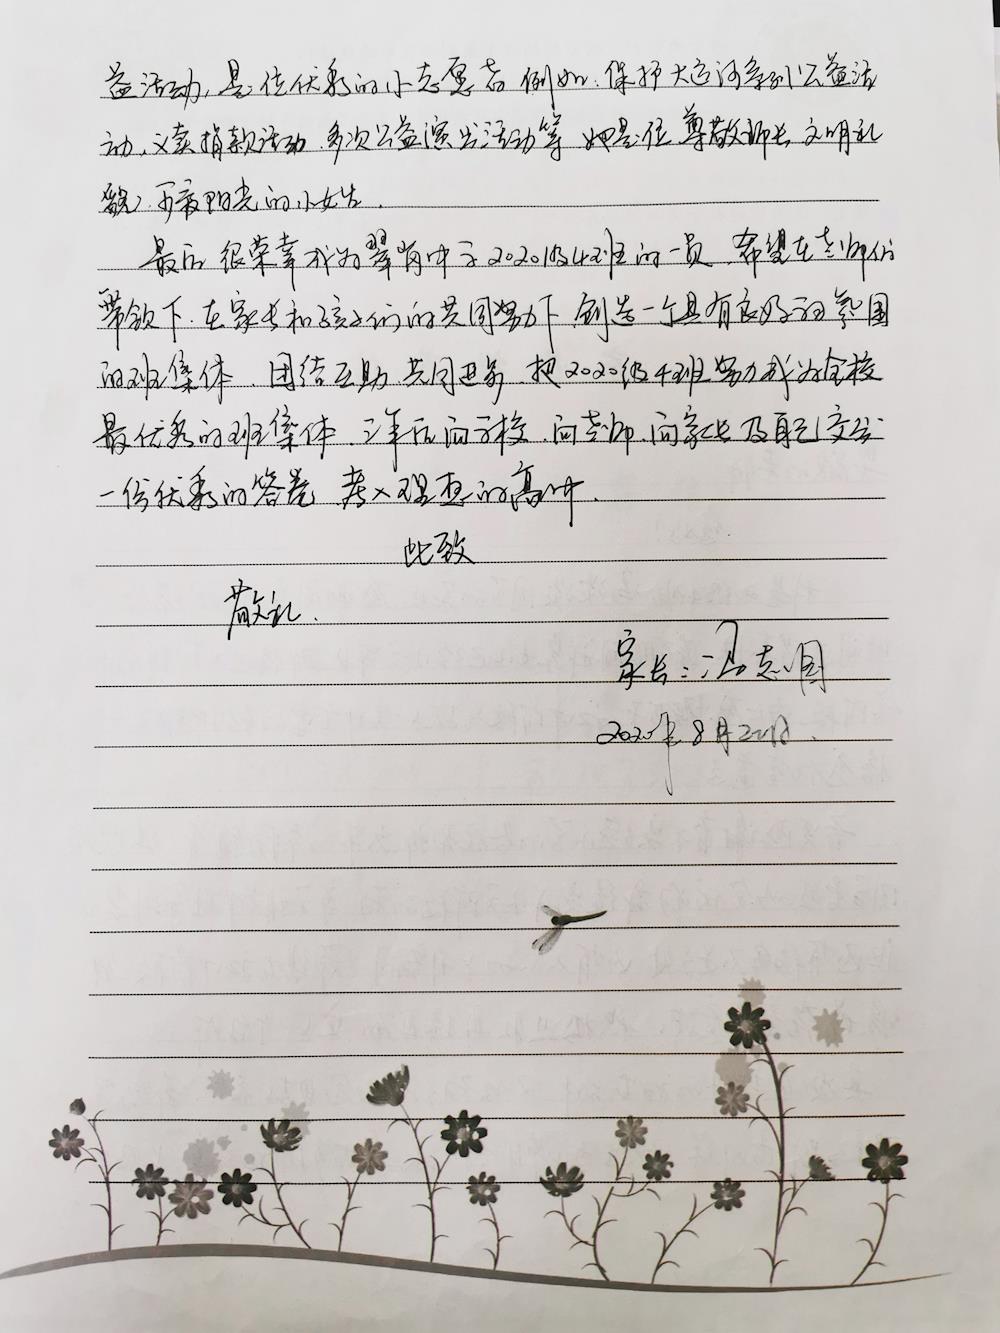 益活动,是位优秀的小志愿者.例如:保护大运河系列公益活
动,义卖捐款活动.多次公益演出活动等.她是位尊敬师长.文明礼
貌.阳光的小女生.
最后很荣幸成为翠岗中学2020级4班的一员.希望在老师们
带领下.在家长和孩子们的共同努力下.创造一个具有良好学习氛围
的班集体.团结互助.共同进步.把2020级4班努力成为全校
最优秀的班集体.三年后向学校.向老师.向家长及自己交出
一份优秀的答卷.考入理想的高中.
此致
敬礼.
家长:冯志国
2020年8月